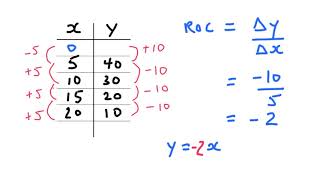 x y
-5 0 +10
+5 5 40 -10
+5 10 30 -10
+5 15 20 -10
20 10
ROC = Δy/Δx
= -10/5
= -2
y = -2x